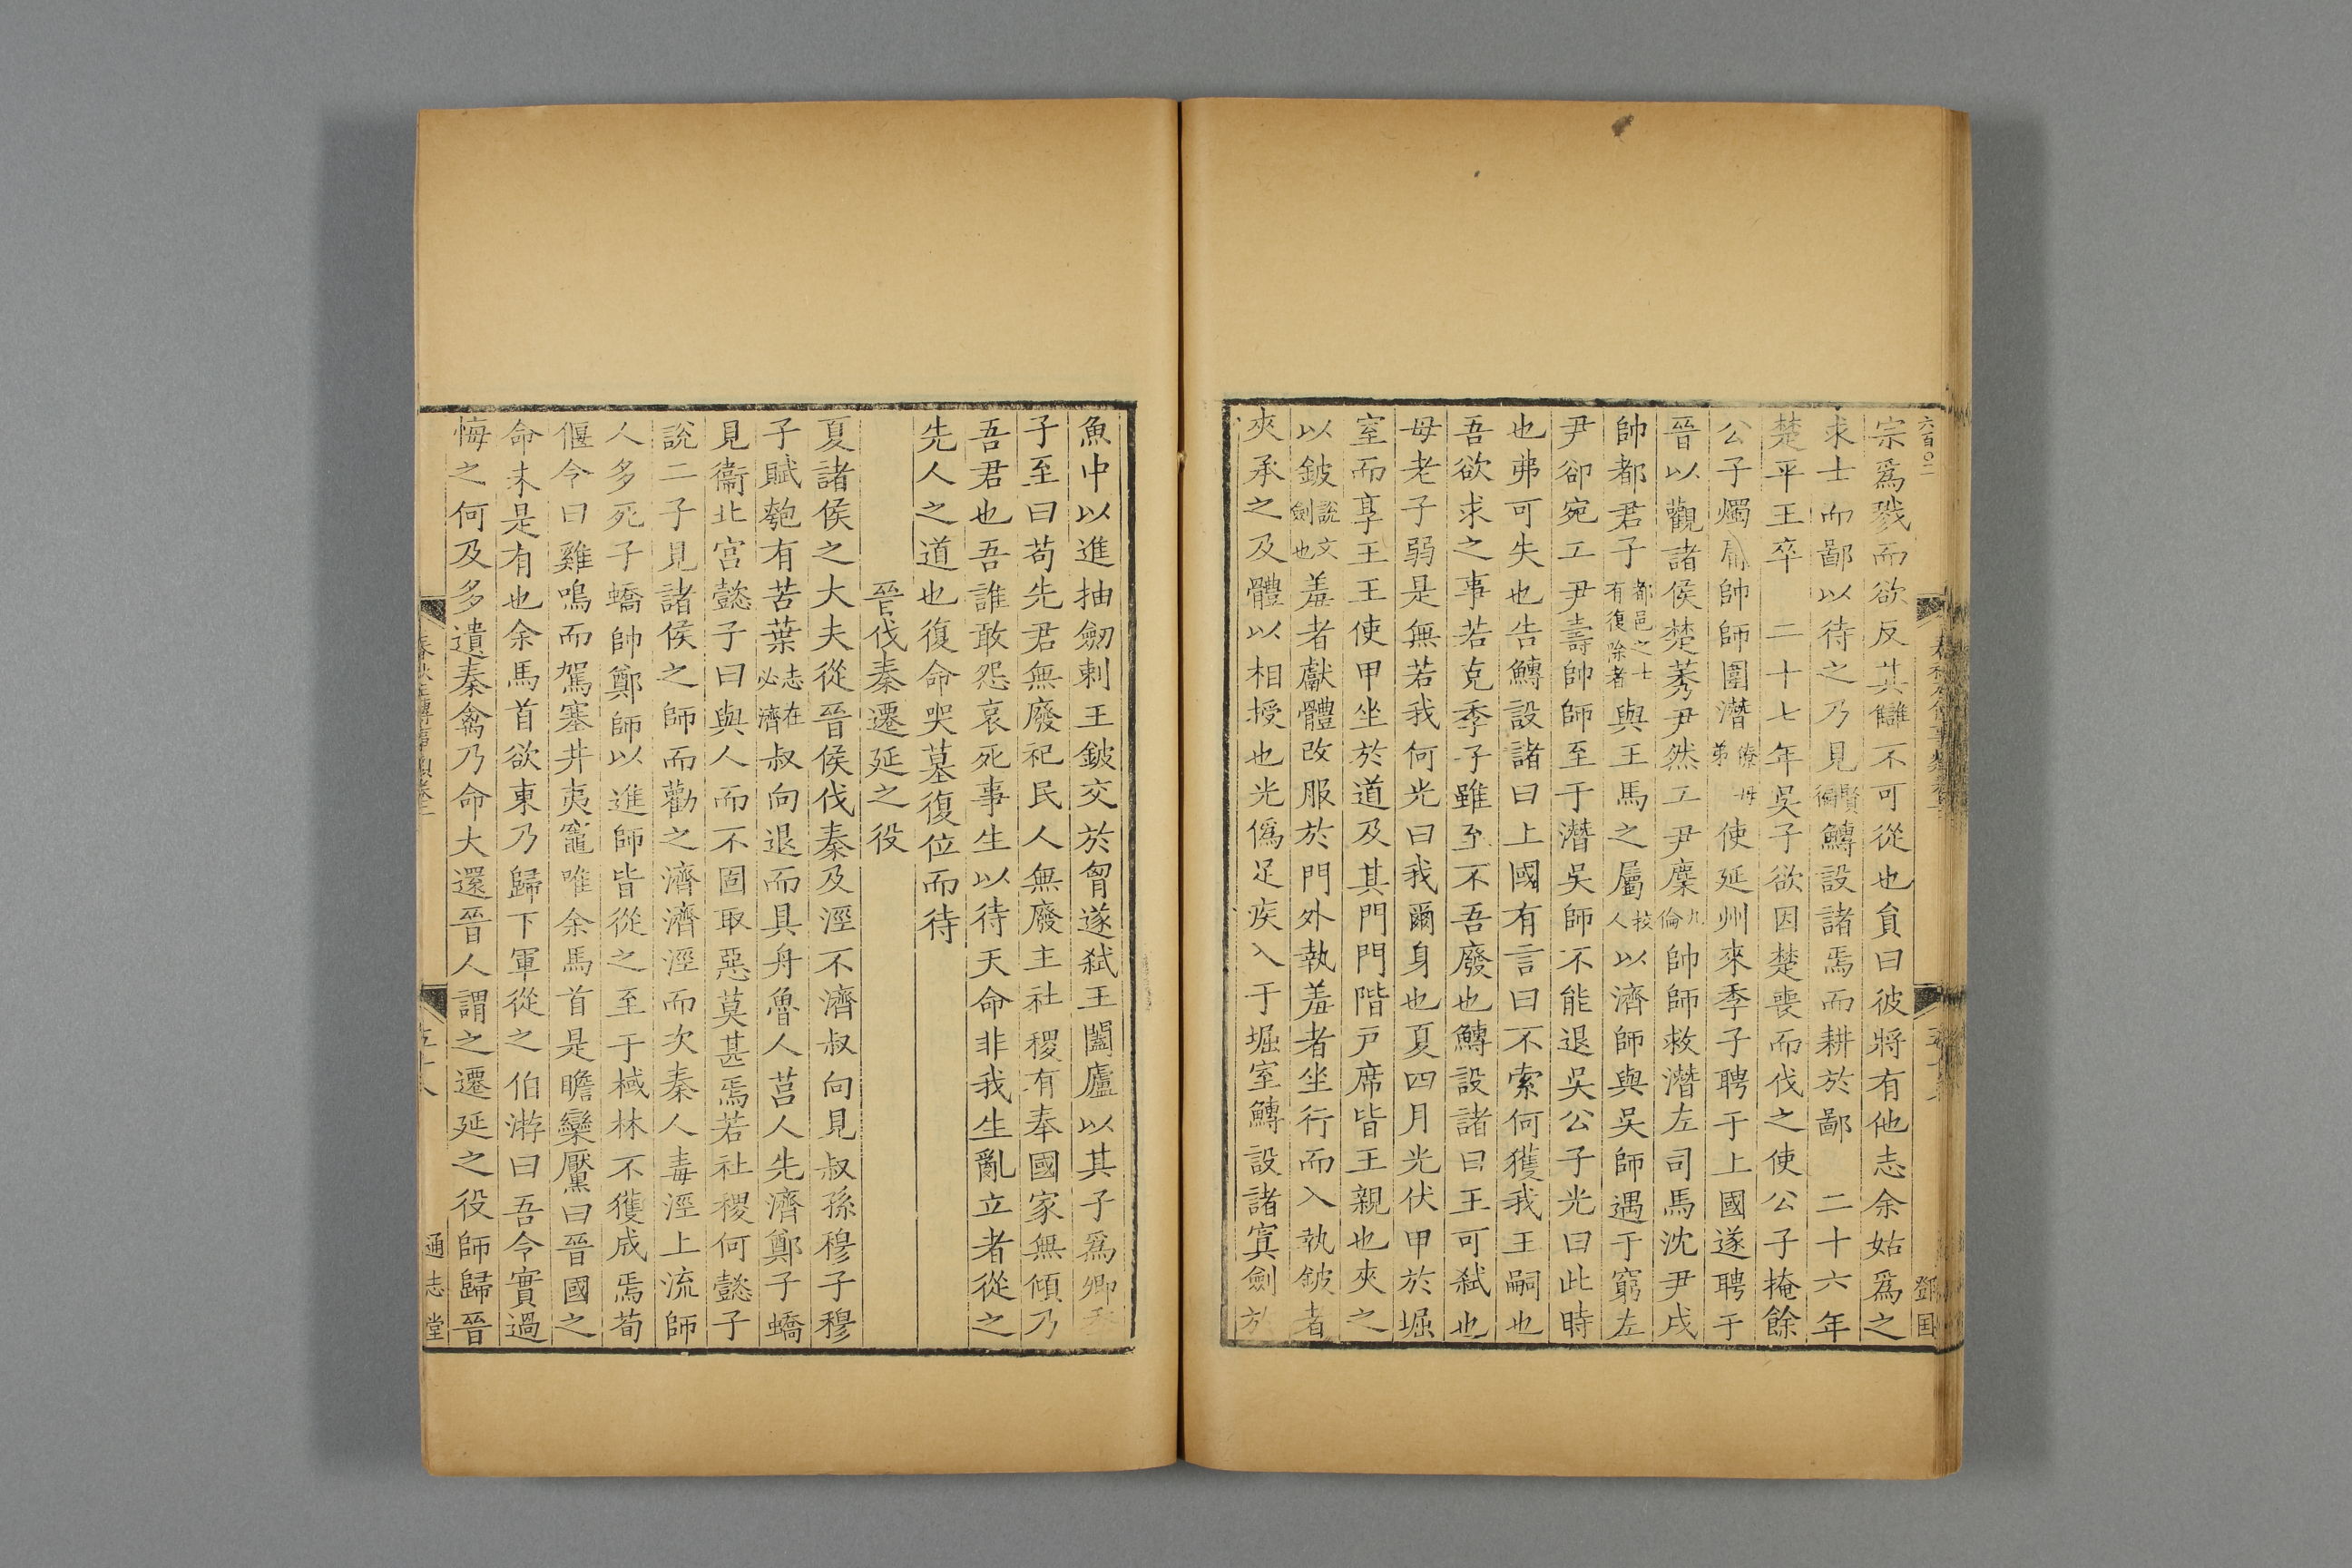 六百〇二
宗爲戮而欲反其讎不可從也員曰彼將有他志余姑爲之
求士而鄙以待之乃見賢徧鱄設諸焉而耕於鄙 二十六年
楚平王卒 二十七年吳子欲因楚喪而伐之使公子掩餘
公子燭庸帥師圍潛僚母弟使延州來季子聘于上國遂聘于
晉以觀諸侯楚莠尹然工尹麇九倫帥師救潛左司馬沈尹戌
帥都君子都邑之士有復除者與王馬之屬校人以濟師與吳師遇于窮左
尹卻宛工尹壽帥師至于潛吳師不能退吳公子光曰此時
也弗可失也告鱄設諸曰上國有言曰不索何獲我王嗣也
吾欲求之事若克季子雖至不吾廢也鱄設諸曰王可弒也
母老子弱是無若我何光曰我爾身也夏四月光伏甲於堀
室而享王王使甲坐於道及其門門階戸席皆王親也夾之
以鈹說文劍也羞者獻體改服於門外執羞者坐行而入執鈹者
夾承之及體以相授也光僞足疾入于堀室鱄設諸寘劍於
魚中以進抽劒刺王鈹交於胷遂弑王闔廬以其子爲卿
子至曰苟先君無廢祀民人無廢主社稷有奉國家無傾乃
吾君也吾誰敢怨哀死事生以待天命非我生亂立者從之
先人之道也復命哭墓復位而待
晉伐秦遷延之役
夏諸侯之大夫從晉侯伐秦及涇不濟叔向見叔孫穆子穆
子賦匏有苦葉志在必濟叔向退而具舟魯人莒人先濟鄭子蟜
見衞北宮懿子曰與人而不固取惡莫甚焉若社稷何懿子
說二子見諸侯之師而勸之濟濟涇而次秦人毒涇上流師
人多死子蟜帥鄭師以進師皆從之至于棫林不獲成焉荀
偃令曰雞鳴而駕塞井夷竈唯余馬首是瞻欒黶曰晉國之
命未是有也余馬首欲東乃歸下軍從之伯游曰吾令實過
悔之何及多遺秦禽乃命大還晉人謂之遷延之役師歸晉
通志堂